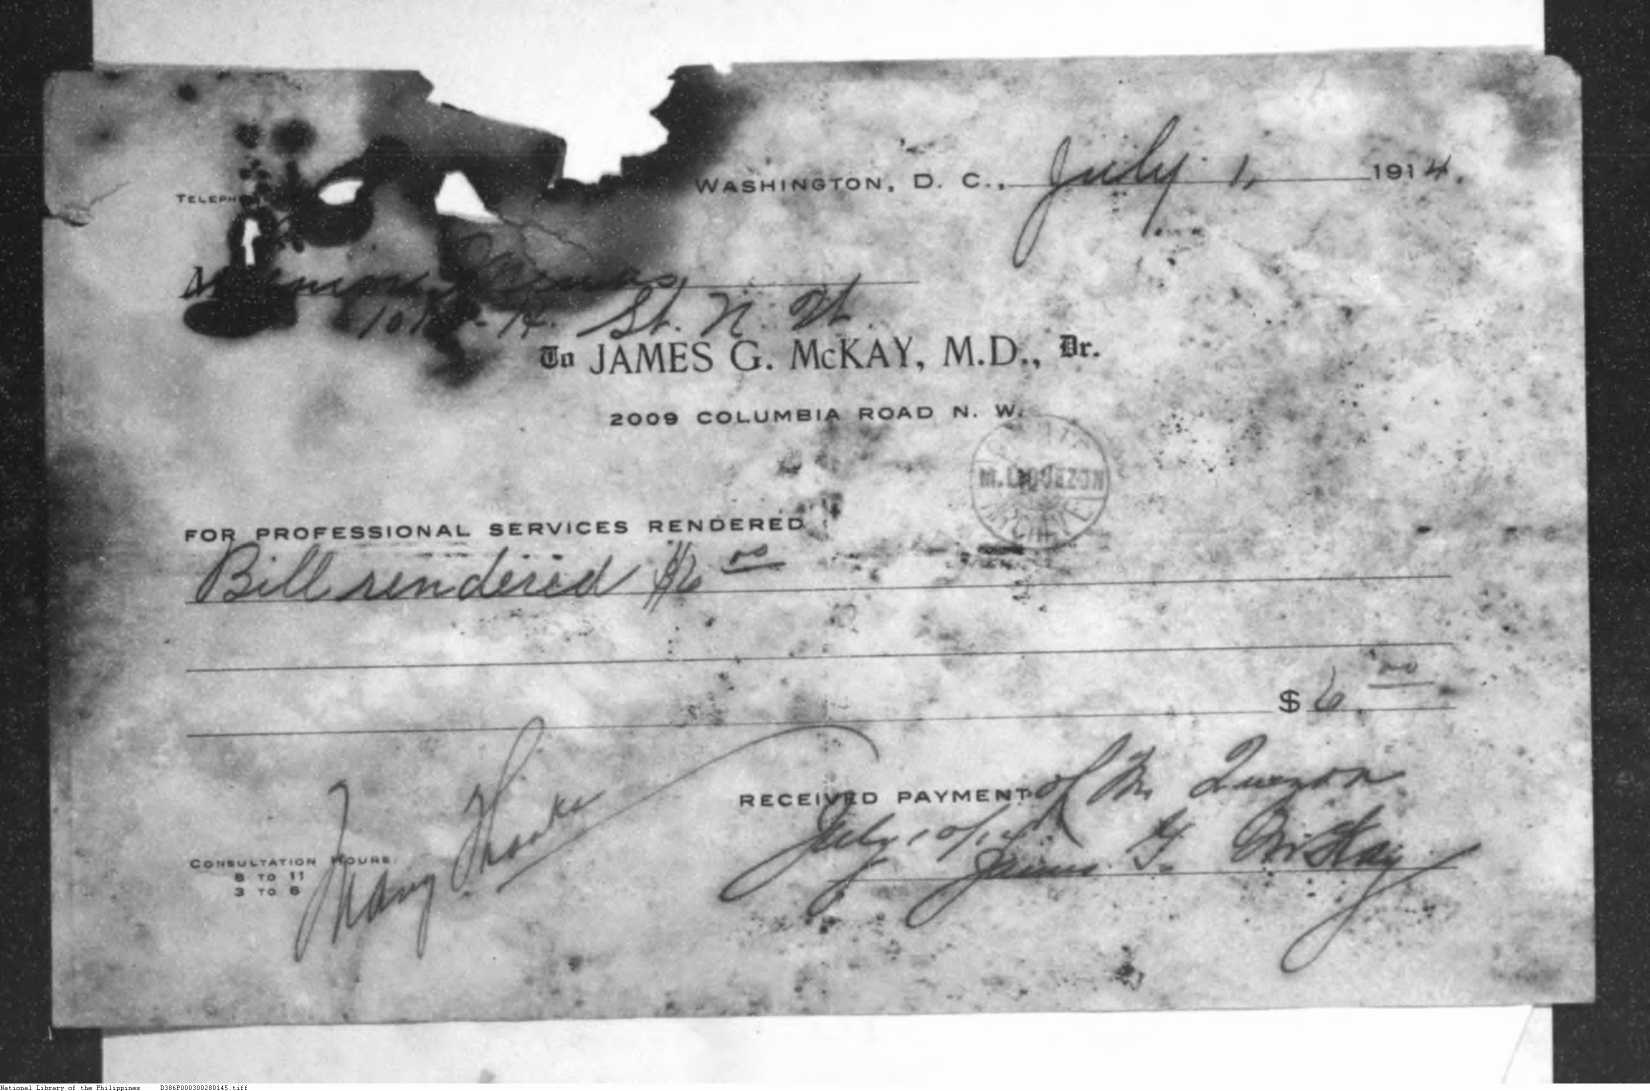 WASHINGTON, D. C., July 1, 1914.
St. N. W.
To JAMES G. McKAY, M.D., Dr.
2009 COLUMBIA ROAD N. W.
M. L. QUEZON
FOR PROFESSIONAL SERVICES RENDERED
Bill rendered $6 00
$ 6 00
RECEIVED PAYMENT of M. Quezon
July 10/14
James G. McKay
CONSULTATION HOURS
8 TO 11
3 TO 6
Many Thanks
National Library of the Philippines D386P000300280145.tiff